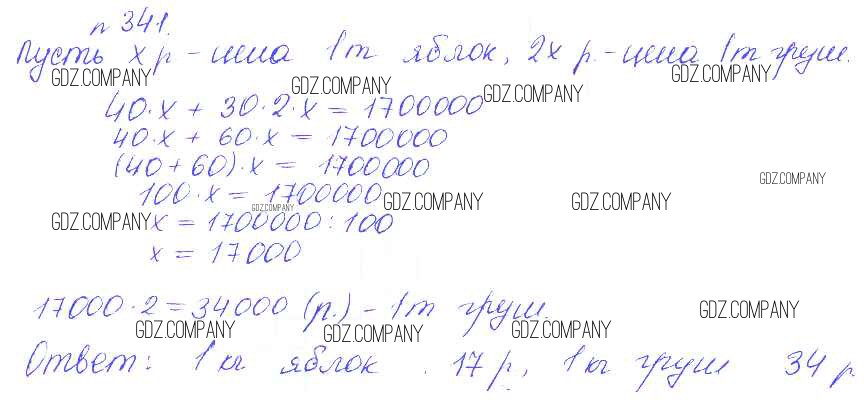 n 341.
Пусть x р - цена 1т яблок, 2x р. - цена 1т груш.
GDZ.COMPANY GDZ.COMPANY GDZ.COMPANY GDZ.COMPANY
40·x + 30·2·x = 1700000
40·x + 60·x = 1700000
(40+60)·x = 1700000
GDZ.COMPANY
100·x = 1700000
GDZ.COMPANY GDZ.COMPANY GDZ.COMPANY
GDZ.COMPANY x = 1700000:100
x = 17000
17000·2=34000 (р.) - 1т груш.
GDZ.COMPANY GDZ.COMPANY GDZ.COMPANY GDZ.COMPANY
Ответ: 1 кг яблок . 17 р, 1 кг груш 34 р